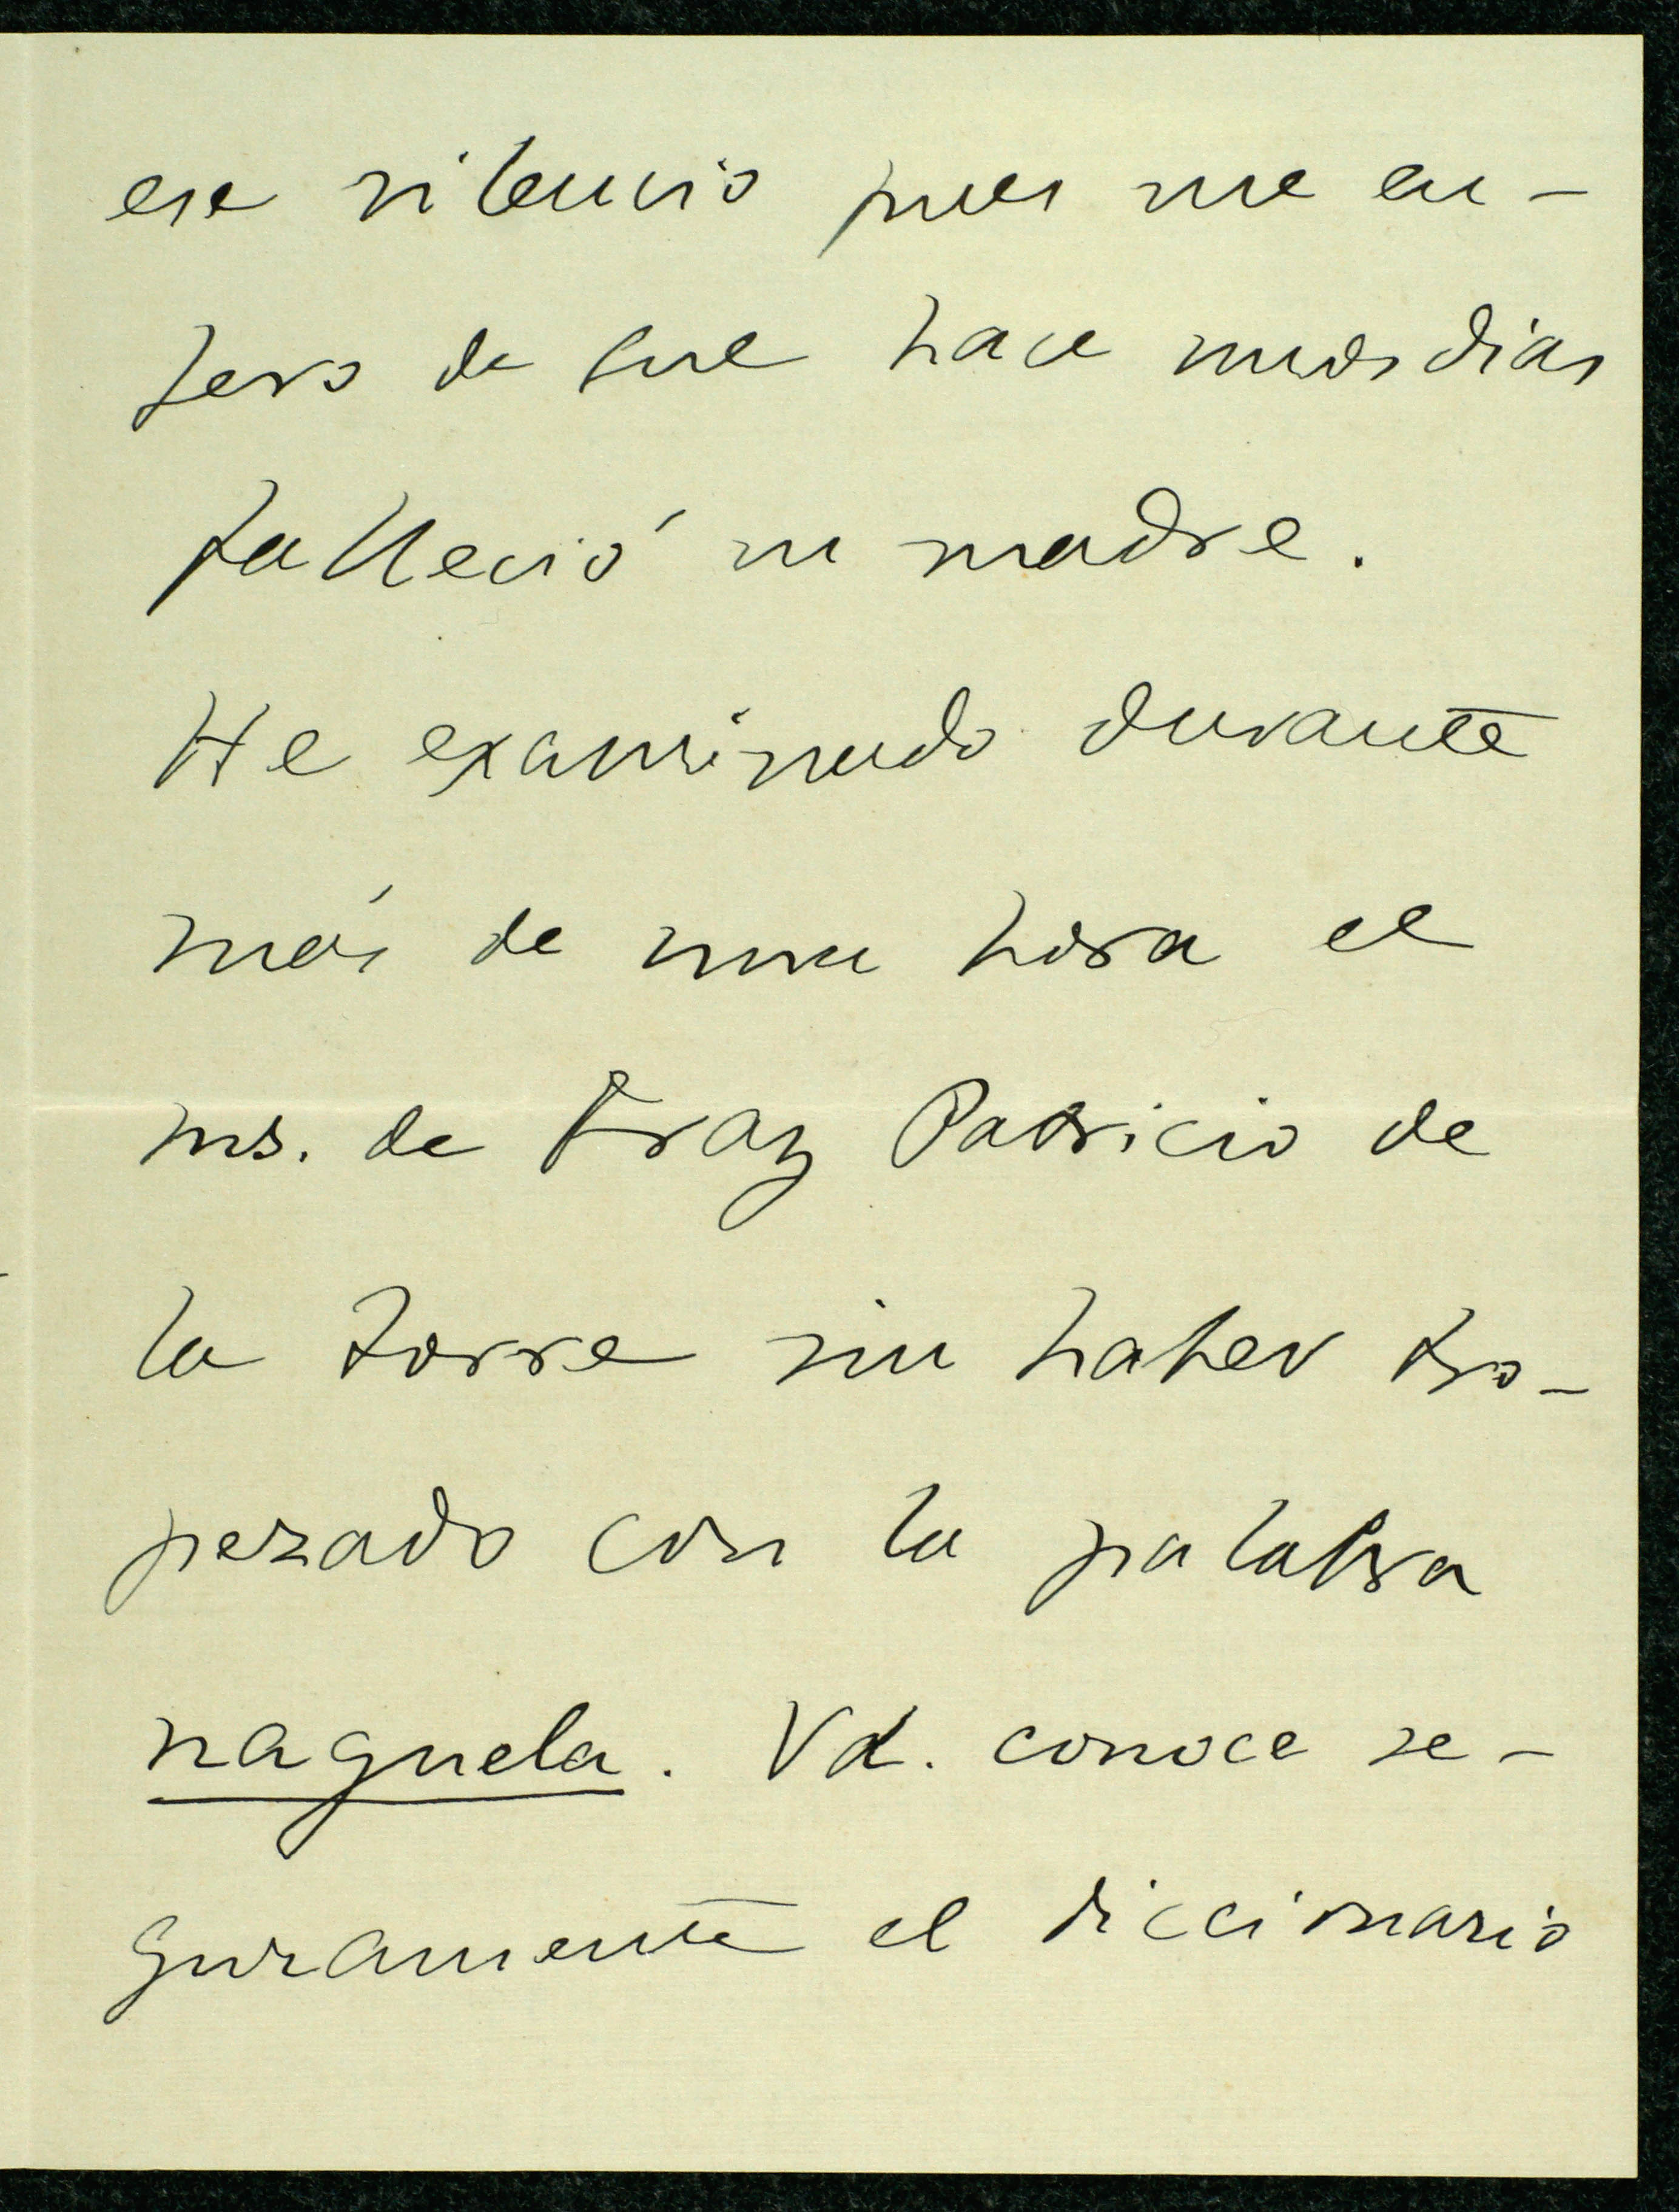 ese silencio pues me en-
tero de que hace unos dias
falleció su madre.
He examinado durante
más de una hora el
ms. de Fray Patricio de
la Torre sin haber tro-
pezado con la palabra
naguela. Vd. conoce se-
guramente el diccionario